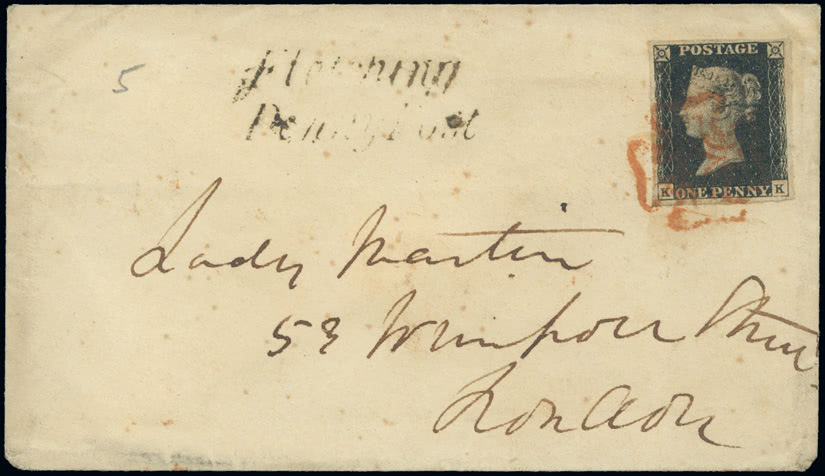 5
Fletching
Penny Post
POSTAGE
K ONE PENNY K
Lady Martin
53 Wimpole Street
London